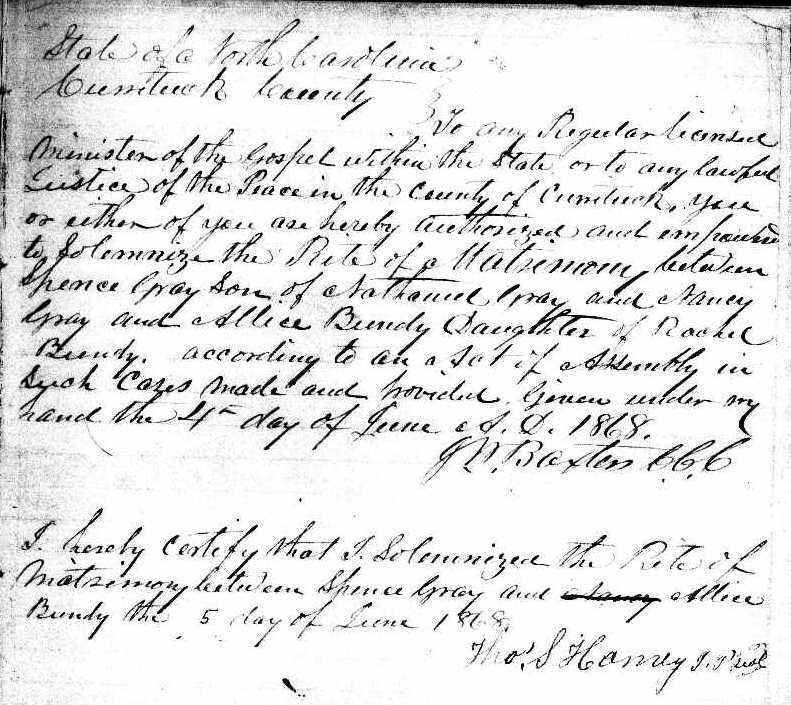 State of North Carolina
Currituck County
To any Regular licensed
Minister of the Gospel within the State or to any lawful
Justice of the Peace in the County of Currituck, you
or either of you are hereby authorized and empowered
to Solemnize the Rite of Matrimony between
Spence Gray Son of Nathaniel Gray and Nancy
Gray and Allice Bundy Daughter of Rachel
Bundy. according to an Act of Assembly in
Such Cases made and provided. Given under my
hand the 4th day of June A. D. 1868.
Baxter C. C. C
I. hereby certify that I. Solemnized the Rite of
Matrimony between Spence Gray and Nancy Allice
Bundy the 5 day of June 1868
Thos S Harvey J. P